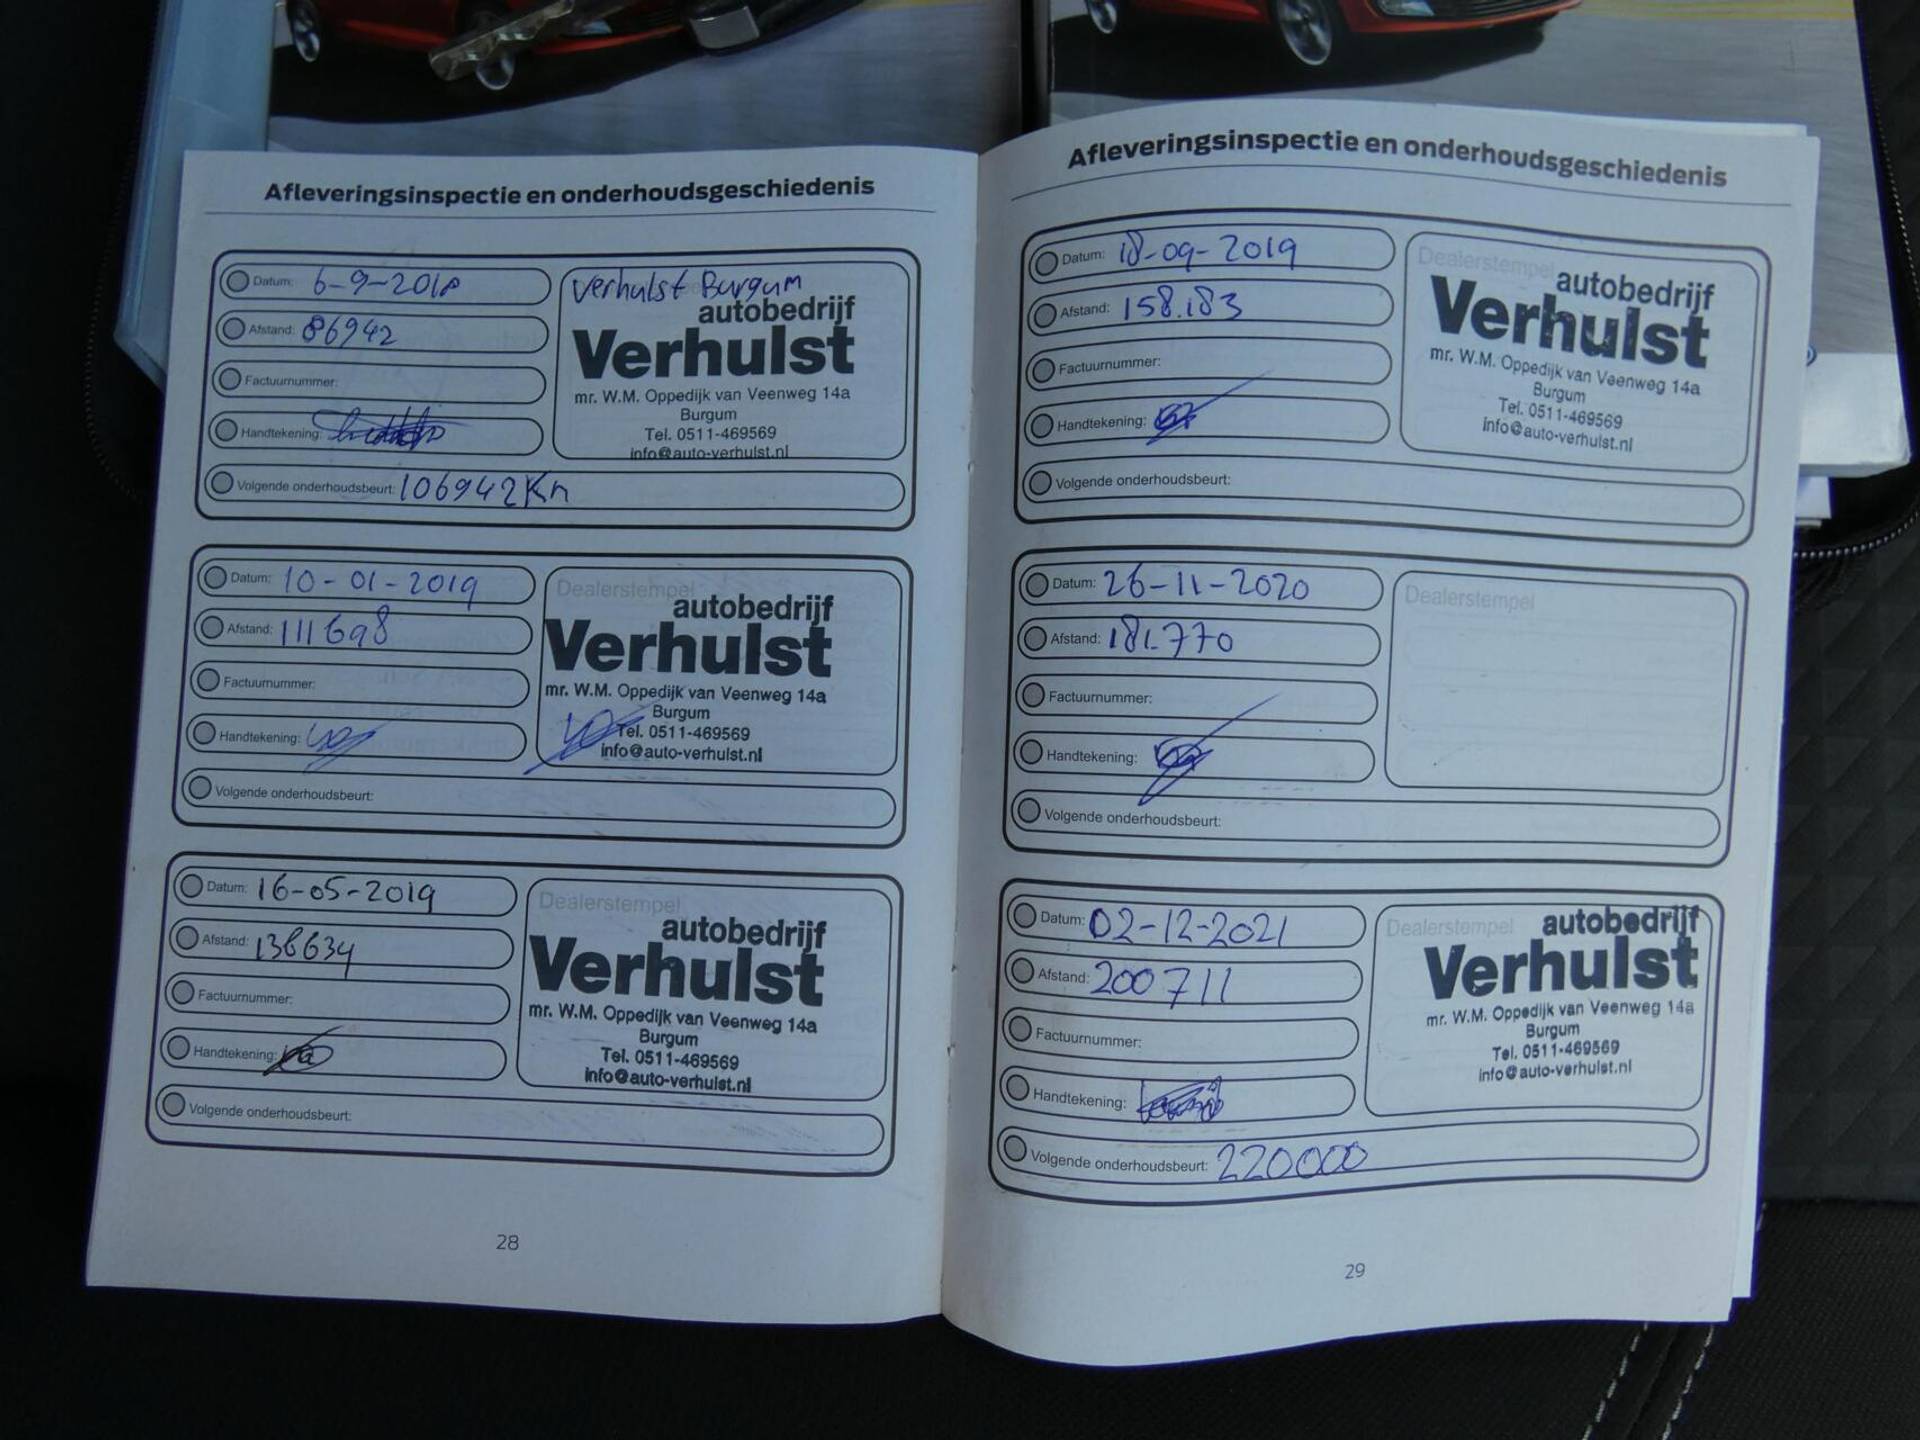 Afleveringsinspectie en onderhoudsgeschiedenis
Datum: 6-9-2018
Afstand: 86942
Factuurnummer:
Handtekening:
Verhulst Burgum
autobedrijf
Verhulst
mr. W.M. Oppedijk van Veenweg 14a
Burgum
Tel. 0511-469569
info@auto-verhulst.nl
Volgende onderhoudsbeurt: 106942 Km
Datum: 10-01-2019
Afstand: 111698
Factuurnummer:
Handtekening:
Dealerstempel
autobedrijf
Verhulst
mr. W.M. Oppedijk van Veenweg 14a
Burgum
Tel. 0511-469569
info@auto-verhulst.nl
Volgende onderhoudsbeurt:
Datum: 16-05-2019
Afstand: 136634
Factuurnummer:
Handtekening:
Dealerstempel
autobedrijf
Verhulst
mr. W.M. Oppedijk van Veenweg 14a
Burgum
Tel. 0511-469569
info@auto-verhulst.nl
Volgende onderhoudsbeurt:
28
Afleveringsinspectie en onderhoudsgeschiedenis
Datum: 18-09-2019
Afstand: 158.183
Factuurnummer:
Handtekening:
Dealerstempel
autobedrijf
Verhulst
mr. W.M. Oppedijk van Veenweg 14a
Burgum
Tel. 0511-469569
info@auto-verhulst.nl
Volgende onderhoudsbeurt:
Datum: 26-11-2020
Afstand: 181.770
Factuurnummer:
Handtekening:
Dealerstempel
Volgende onderhoudsbeurt:
Datum: 02-12-2021
Afstand: 200711
Factuurnummer:
Handtekening:
Dealerstempel
autobedrijf
Verhulst
mr. W.M. Oppedijk van Veenweg 14a
Burgum
Tel. 0511-469569
info@auto-verhulst.nl
Volgende onderhoudsbeurt: 220000
29